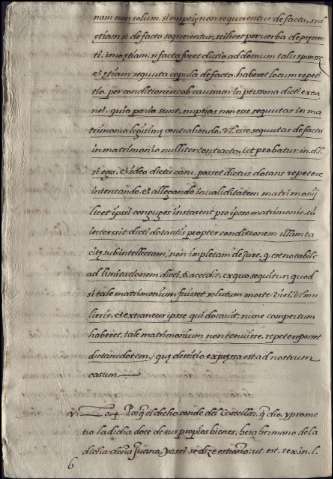 nam non solum, si nuptiæ non sequerentur de facto, sed
etiam si de facto sequerentur, scilicet per verba de præsen
ti, imo etiam, si facta foret ductio ad domum talis sponsæ,
& etiam sequuta copula de facto haberet locum repeti
tio, per conditionem ob causam in persona dicti extra
nei, quia perinde sunt, nuptias non esse sequutas in ma
trimonio legitime contrahendo, vel esse sequutas de facto
in matrimonio nulliter contracto, ut probatur in dict.
& ideo dicta causa, potest dictus dotans repetere
intentando, & allegando invaliditatem matrimonij
licet ipsi conjuges instarent pro ipso matrimonio, cum
intersit dicti dotantis propter conditionem illam ta
cite subintellectam, non impletam de jure, quod est notabile
ad limitationem & accedit, ex quo sequitur quod
si tale matrimonium fuisset solutum morte mu
lieris, & extraneus ipse qui dotavit, nunc compertum
haberet, tale matrimonium non tenuisse, repetere posset
dictam dotem, quæ decisio expressa est ad nostrum
casum.
que el dicho conde del Castellar, que dio y prome
tio la dicha dote de sus propios bienes, hera hermano de la
dicha doña Juana, y assi se dize estraño, ut est tex. in l.
6